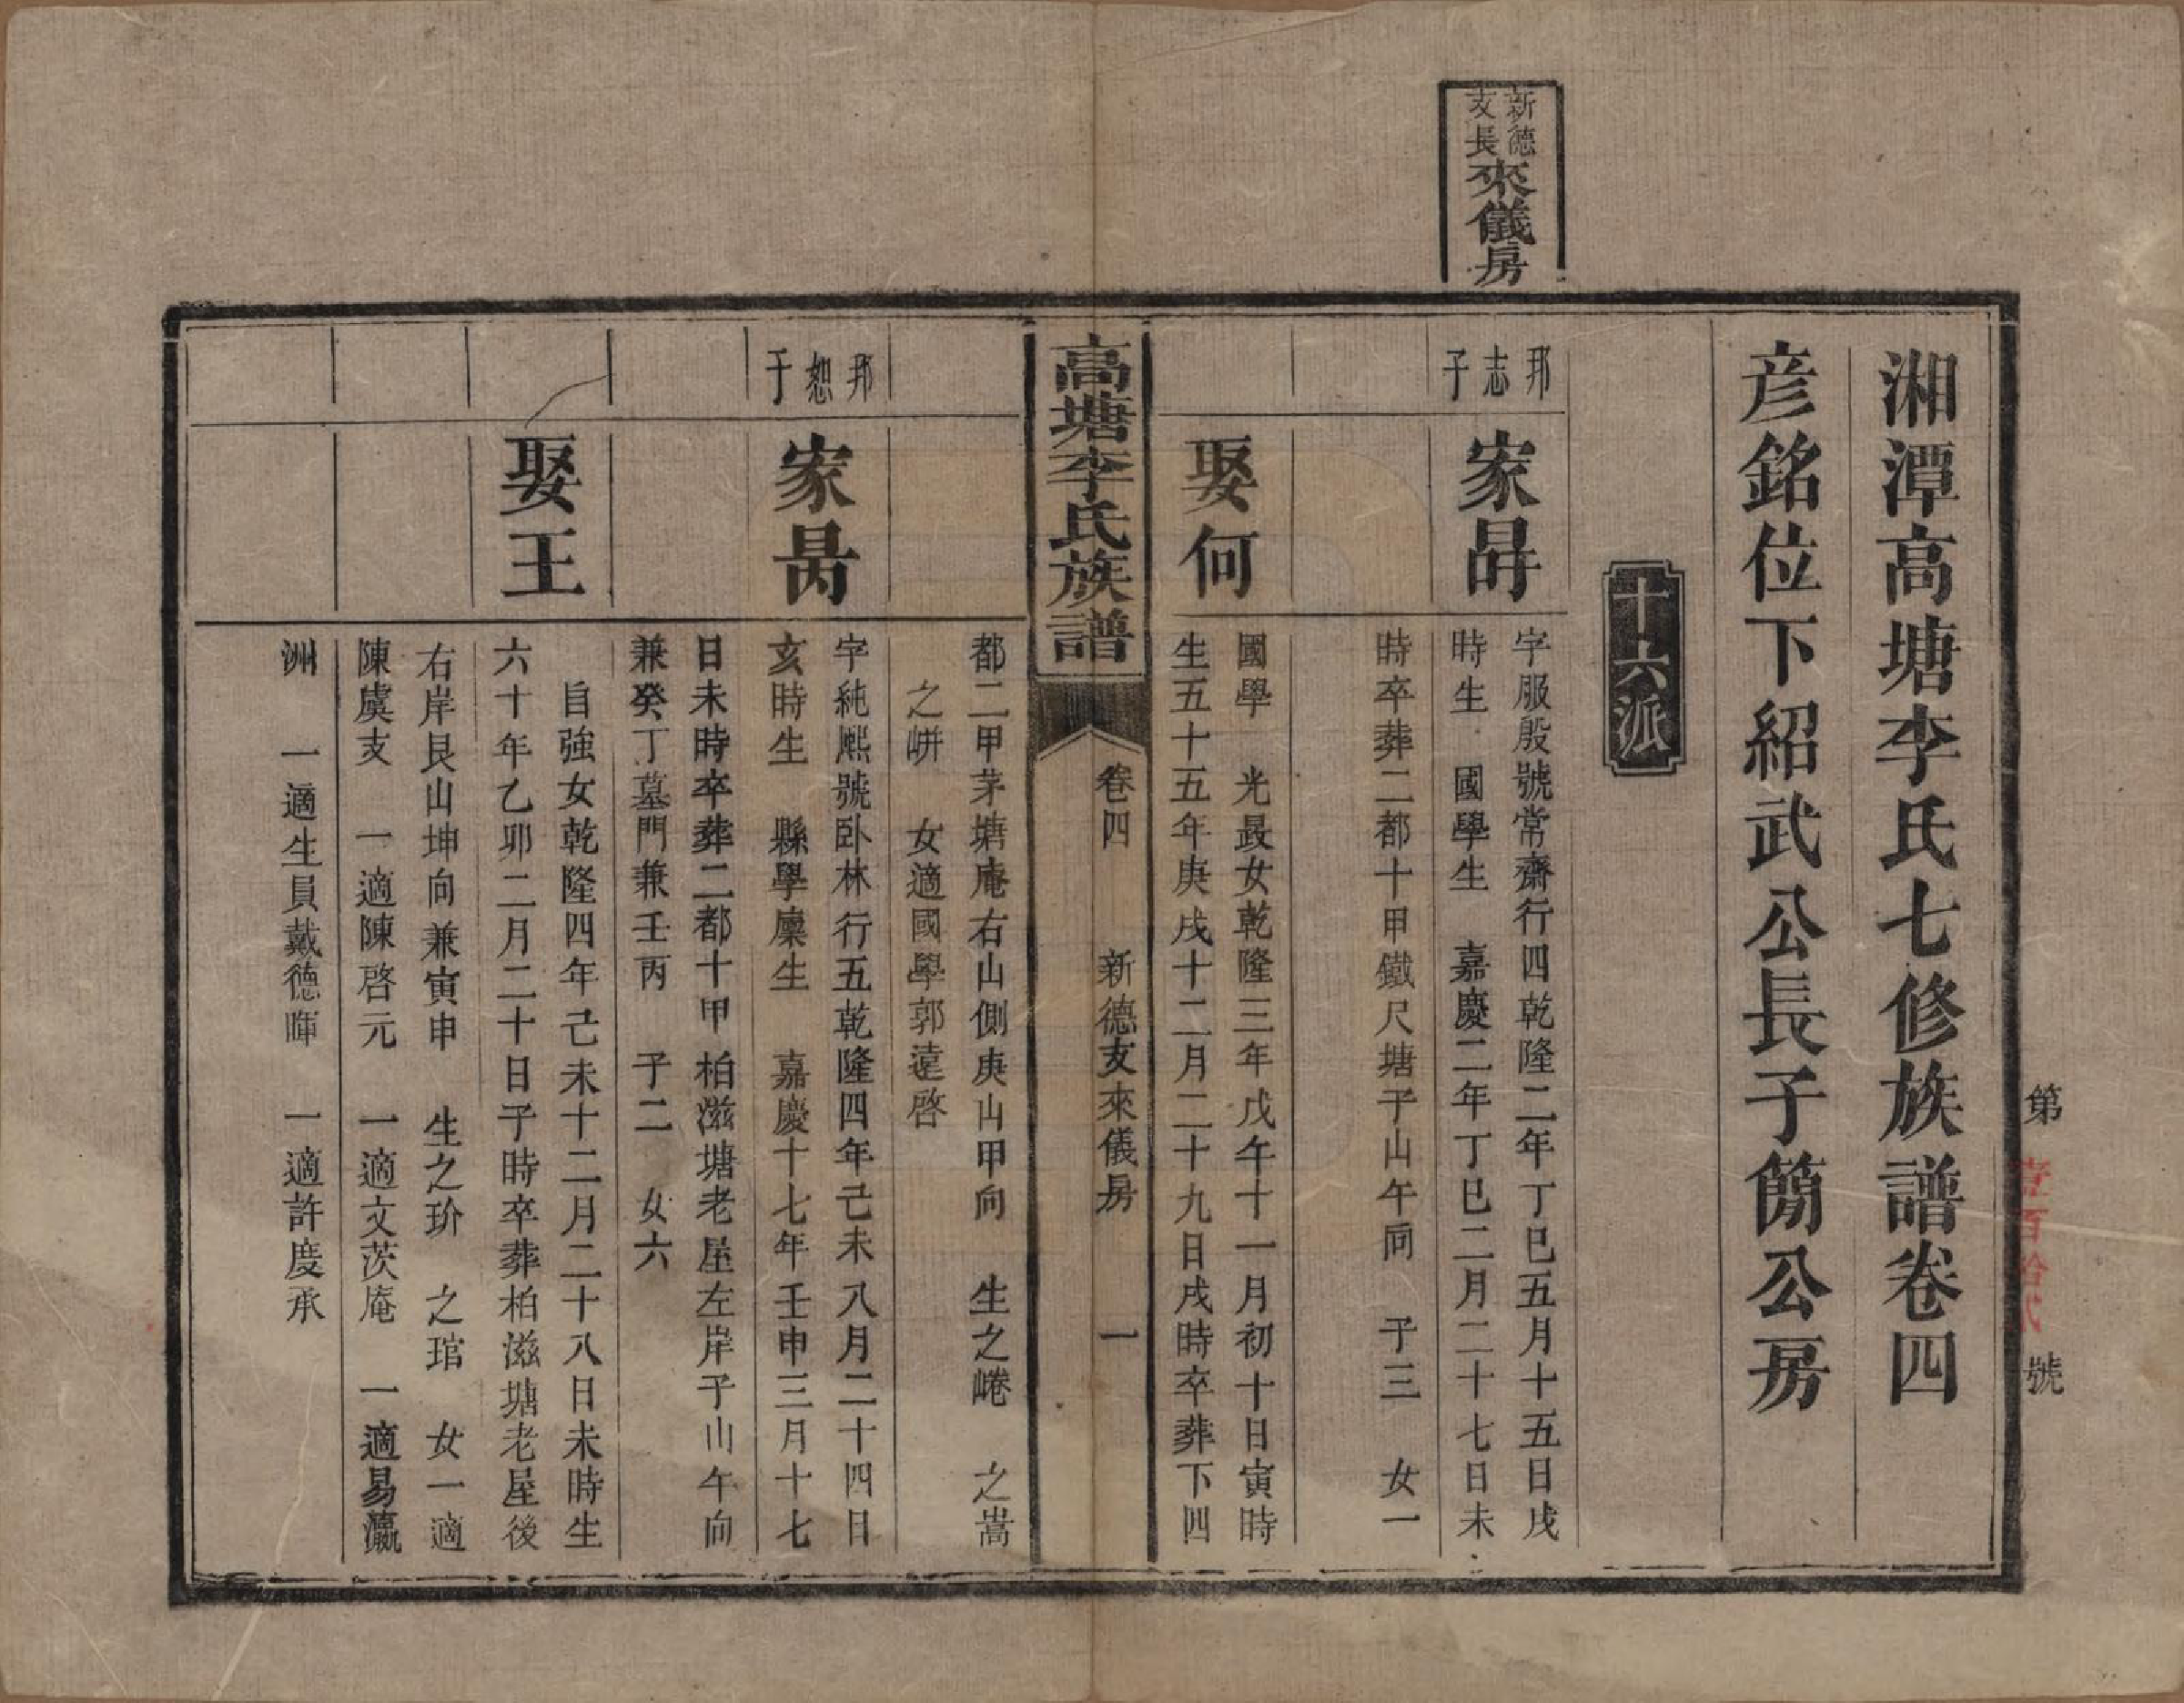 新德
支長
來儀房
第壹百拾貳號
湘潭高塘李氏七修族譜卷四
彦銘位下紹武公長子簡公房
十六派
邦志子
家㝵
字服殷號常齋行四乾隆二年丁巳五月十五日戌
時生 國學生 嘉慶二年丁巳二月二十七日未
時卒葬二都十甲鐵尺塘子山午向 子三 女一
娶何
國學 光晸女乾隆三年戊午十一月初十日寅時
生五十五年庚戌十二月二十九日戌時卒葬下四
高塘李氏族譜
卷四 新德支來儀房 一
都二甲茅塘庵右山側庚山甲向 生之峑 之嵩
之峅 女適國學郭遠啓
邦恕子
家昺
字純熙號卧林行五乾隆四年己未八月二十四日
亥時生 縣學廩生 嘉慶十七年壬申三月十七
日未時卒葬二都十甲柏滋塘老屋左岸子山午向
兼癸丁墓門兼壬丙 子二 女六
娶王
自強女乾隆四年己未十二月二十八日未時生
六十年乙卯二月二十日子時卒葬柏滋塘老屋後
右岸艮山坤向兼寅申 生之玠 之琯 女一適
陳虞支 一適陳啓元 一適文茨庵 一適易瀛
洲 一適生員戴德暉 一適許慶承